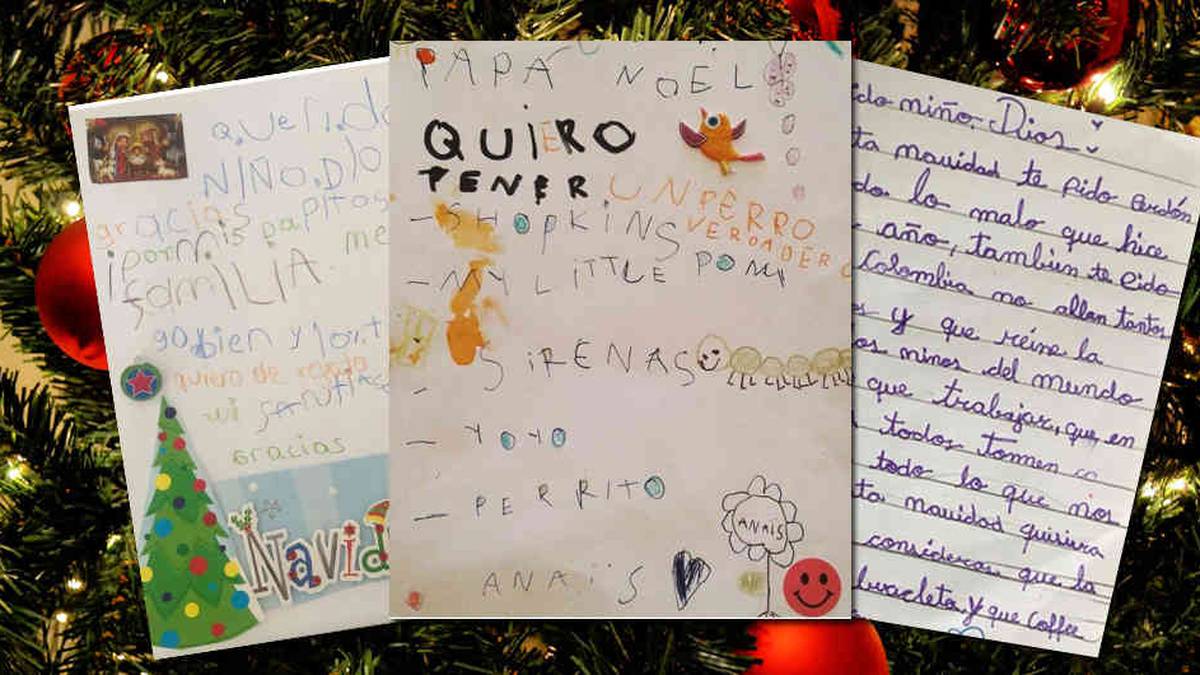 Querido
NIÑO.DIO
gracias
pormis papitos
familia. me
bien y
quiero de regalo
mi
gracias
Navid
PAPA NOEL
QUIERO
TENER UN PERRO
VERDADERO
- SHOPKINS
- MY LITTLE PONY
- SIRENAS
- YOYO
- PERRITO
ANAIS
ANAiS
ido niño Dios
ta navidad te pido perdón
do lo malo que hice
año, tambien te pido
Colombia no allan tantos
s y que reine la
os ninos del mundo
que trabajar, que, en
todos tomen
todo lo que nos
ta navidad quisiera
considerar que la
y que Coffee